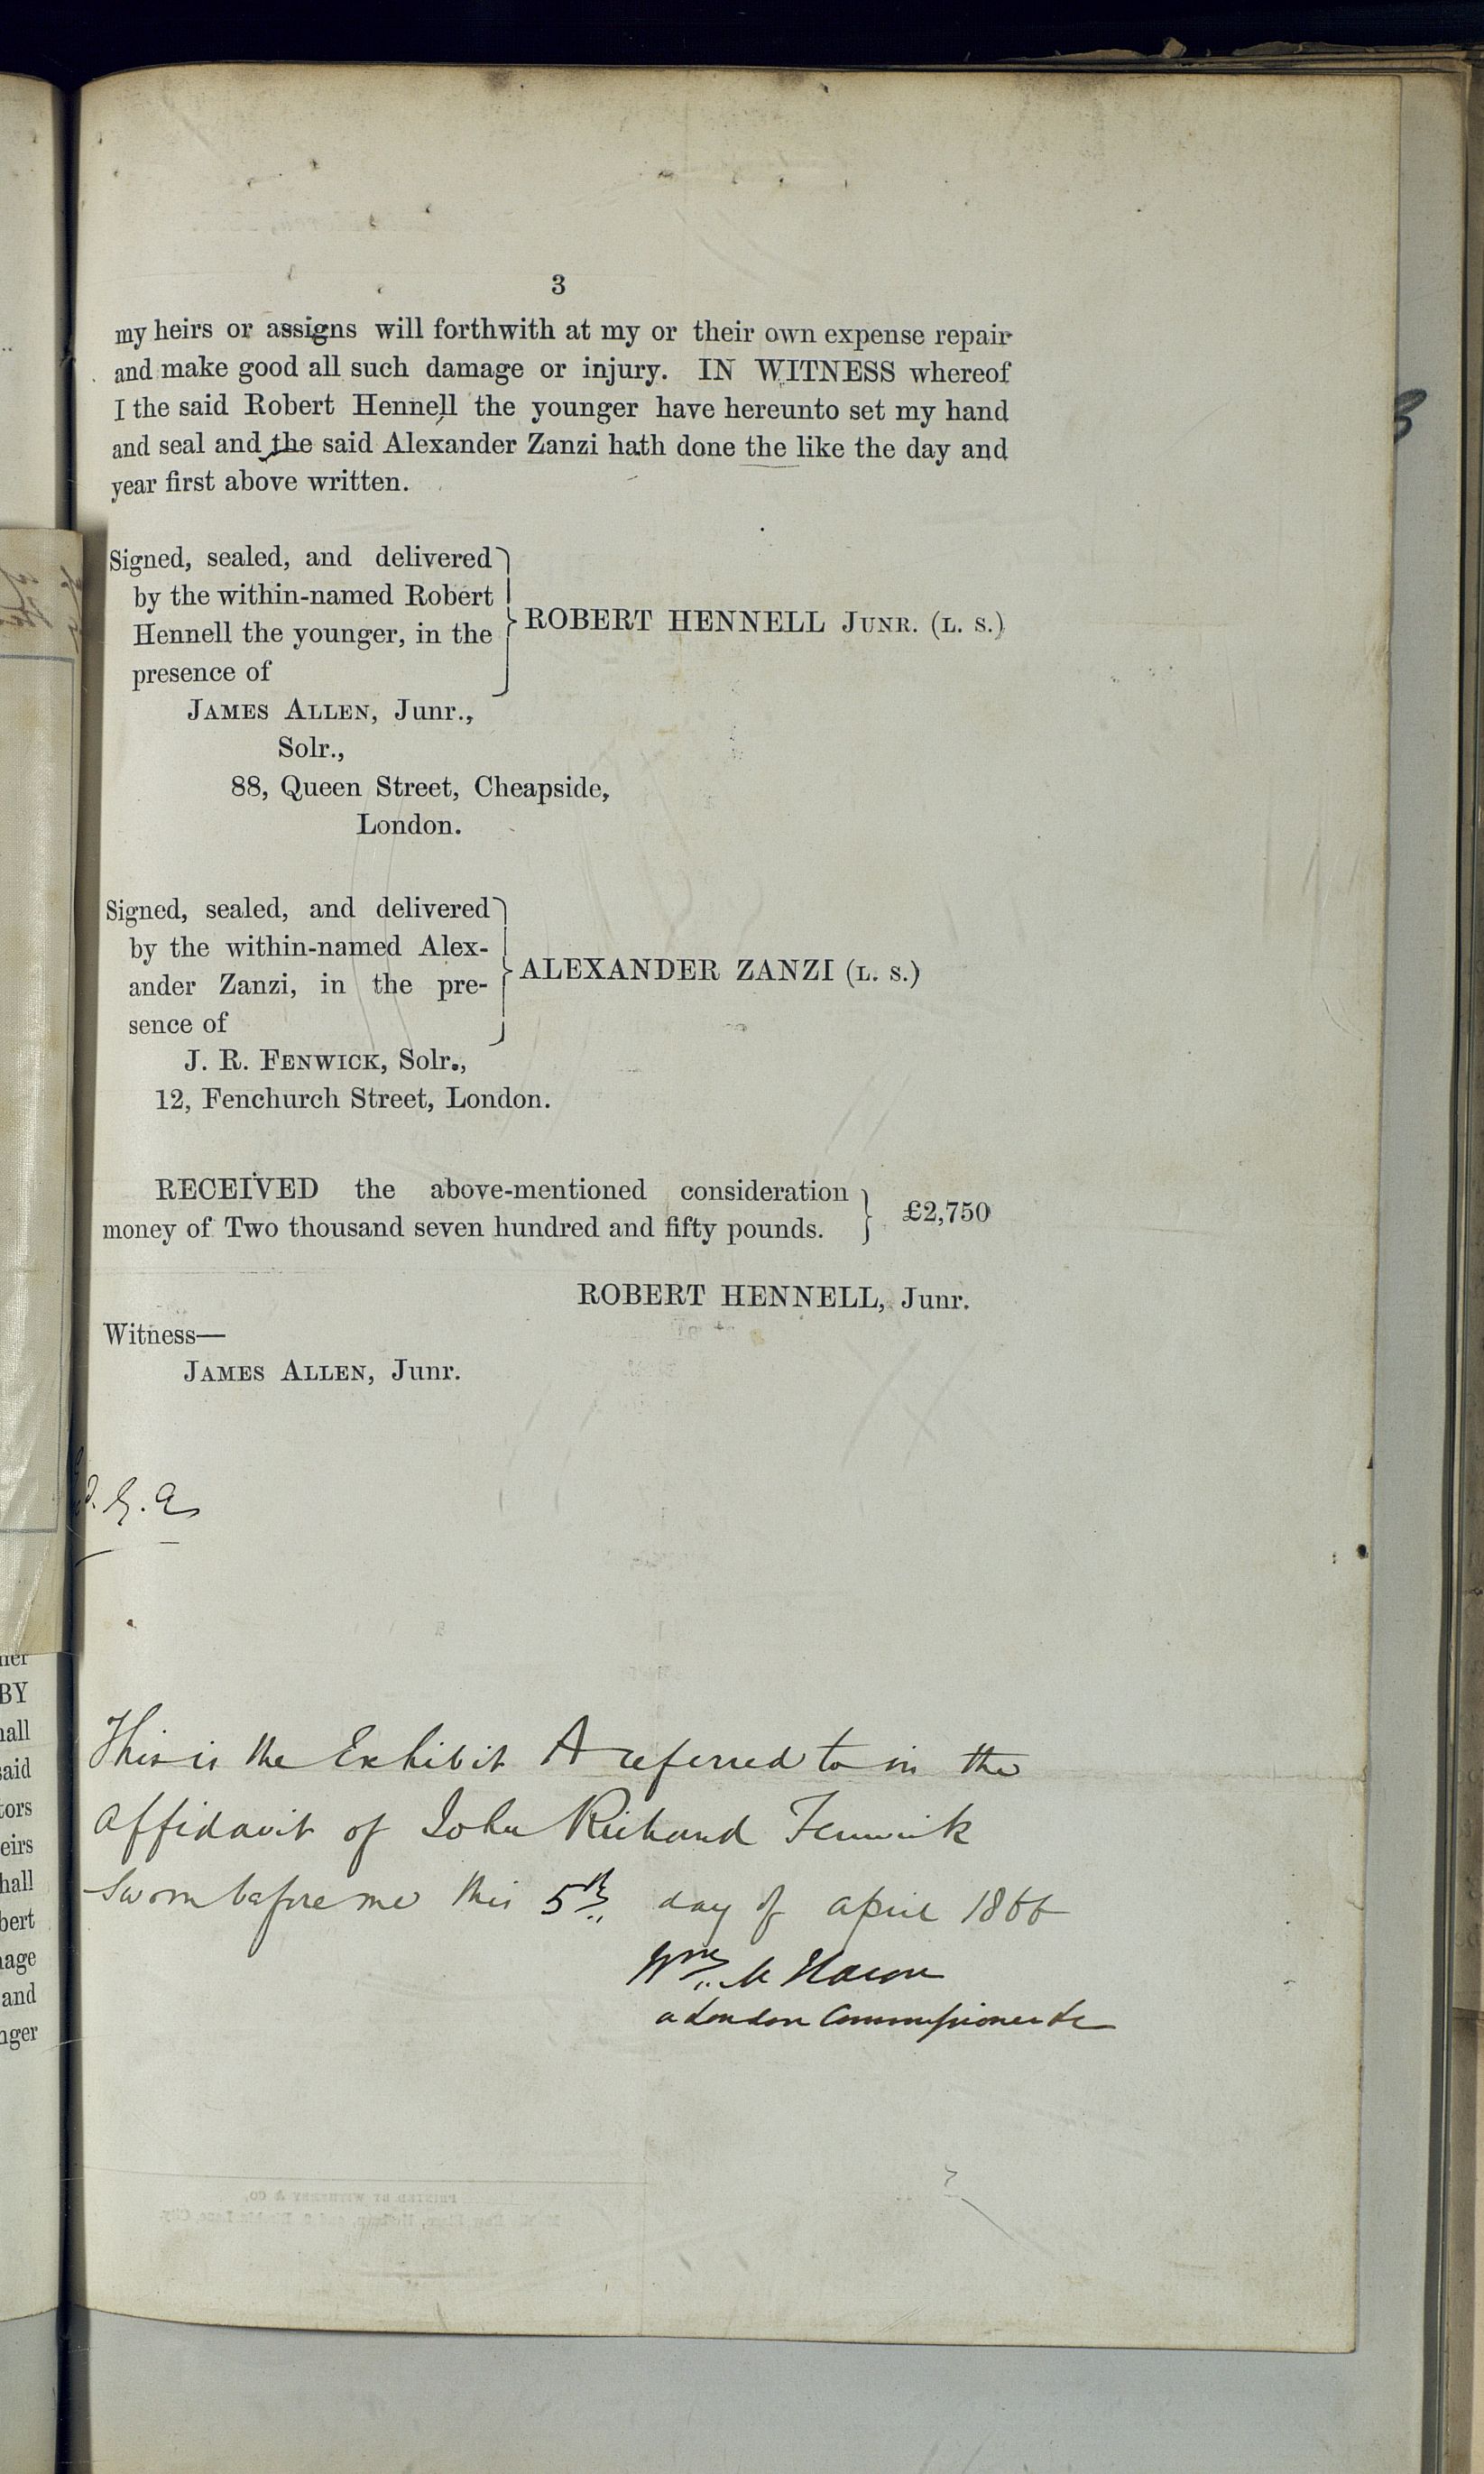 3
my heirs or assigns will forthwith at my or their own expense repair
and make good all such damage or injury. IN WITNESS whereof
I the said Robert Hennell the younger have hereunto set my hand
and seal and the said Alexander Zanzi hath done the like the day and
year first above written.
Signed, sealed, and delivered
by the within-named Robert
Hennell the younger, in the
presence of
ROBERT HENNELL JUNR. (L. S.)
JAMES ALLEN, Junr.,
Solr.,
88, Queen Street, Cheapside,
London.
Signed, sealed, and delivered
by the within-named Alex-
ander Zanzi, in the pre-
sence of
ALEXANDER ZANZI (L. S.)
J. R. FENWICK, Solr.,
12, Fenchurch Street, London.
RECEIVED the above-mentioned consideration
money of Two thousand seven hundred and fifty pounds.
£2,750
ROBERT HENNELL, Junr.
Witness—
JAMES ALLEN, Junr.
This is the Exhibit A referred to in the
affidavit of John Richard Fenwick
Sworn before me this 5th day of April 1866
Wm.
a London Commissioner &c
BY
hall
said
tors
eirs
hall
bert
nage
and
nger